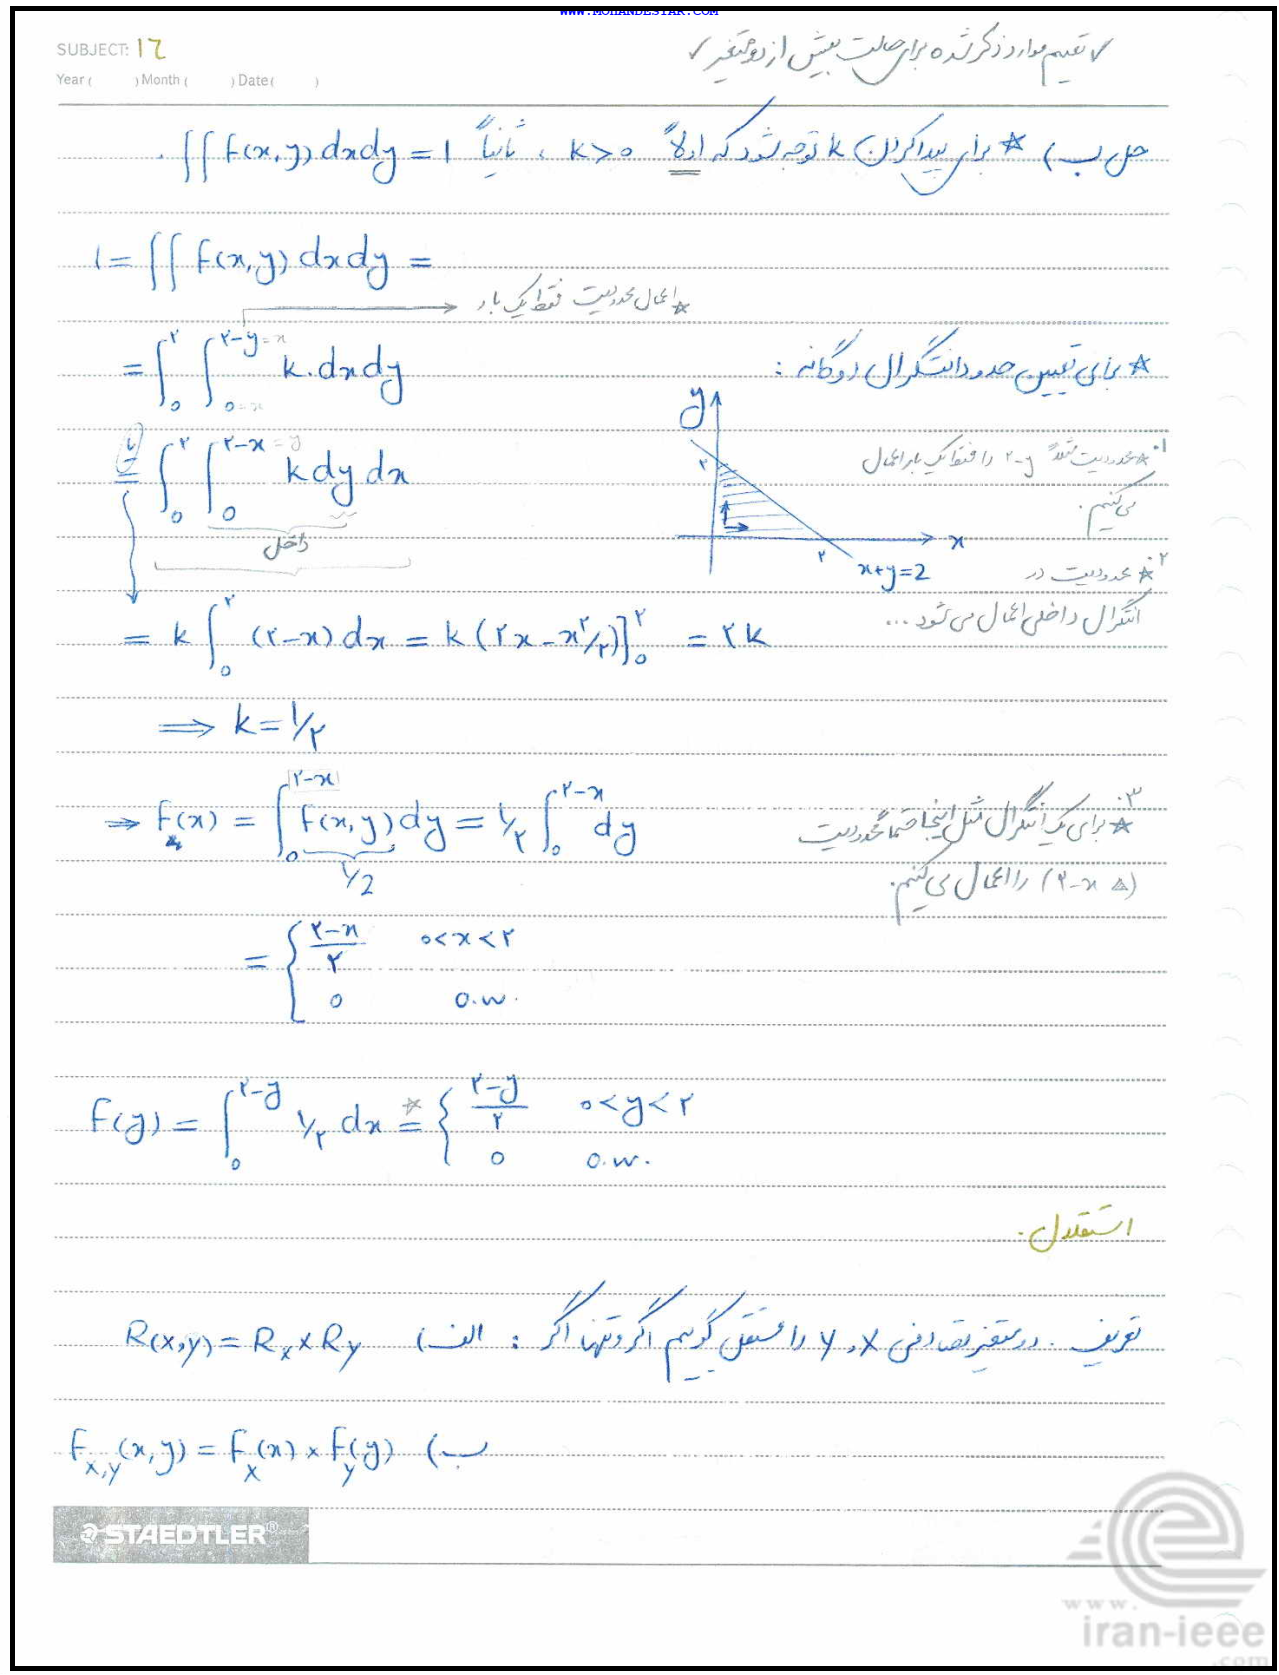 WWW.MOHANDESYAR.COM
SUBJECT: 17
Year ( ) Month ( ) Date ( )
✓ تعمیم موارد ذکر شده برای حالت بیش از دو متغیر ✓
حل ب) ☆ برای پیدا کردن k توجه شود که اولاً k>0 ، ثانیاً ∫∫ f(x,y) dxdy = 1 .
1 = ∫∫ f(x,y) dxdy =
☆ اعمال محدودیت فقط یک بار
= ∫₀^۲ ∫_{0=x}^{۲-y=x} k.dxdy
☆ برای تعیین حدود انتگرال دوگانه :
یا = ∫₀^۲ ∫₀^{۲-x=y} k dy dx
داخل
y
۲
x
۲
x+y=2
۱. ☆ محدودیت مثلاً ۲-y را فقط یک بار اعمال
می کنیم.
۲. ☆ محدودیت در
انتگرال داخلی اعمال می شود ...
= k ∫₀^۲ (۲-x) dx = k (۲x - x^۲/۲)]₀^۲ = ۲k
⟹ k = ۱/۲
⇒ f_x(x) = ∫₀^{۲-x} f(x,y) dy = ۱/۲ ∫₀^{۲-x} dy
1/2
۳. ☆ برای یک انتگرال مثل اینجا حتماً محدودیت
(۲-x △) را اعمال می کنیم.
= { (۲-x)/۲ 0<x<۲
0 o.w.
f(y) = ∫₀^{۲-y} ۱/۲ dx =☆ { (۲-y)/۲ 0<y<۲
0 o.w.
استقلال.
تعریف. دو متغیر تصادفی X، Y را مستقل گوییم اگر و تنها اگر : الف) R(x,y) = R_x × R_y
ب) f_{x,y}(x,y) = f_x(x) × f_y(y)
STAEDTLER®
www.
iran-ieee
.com